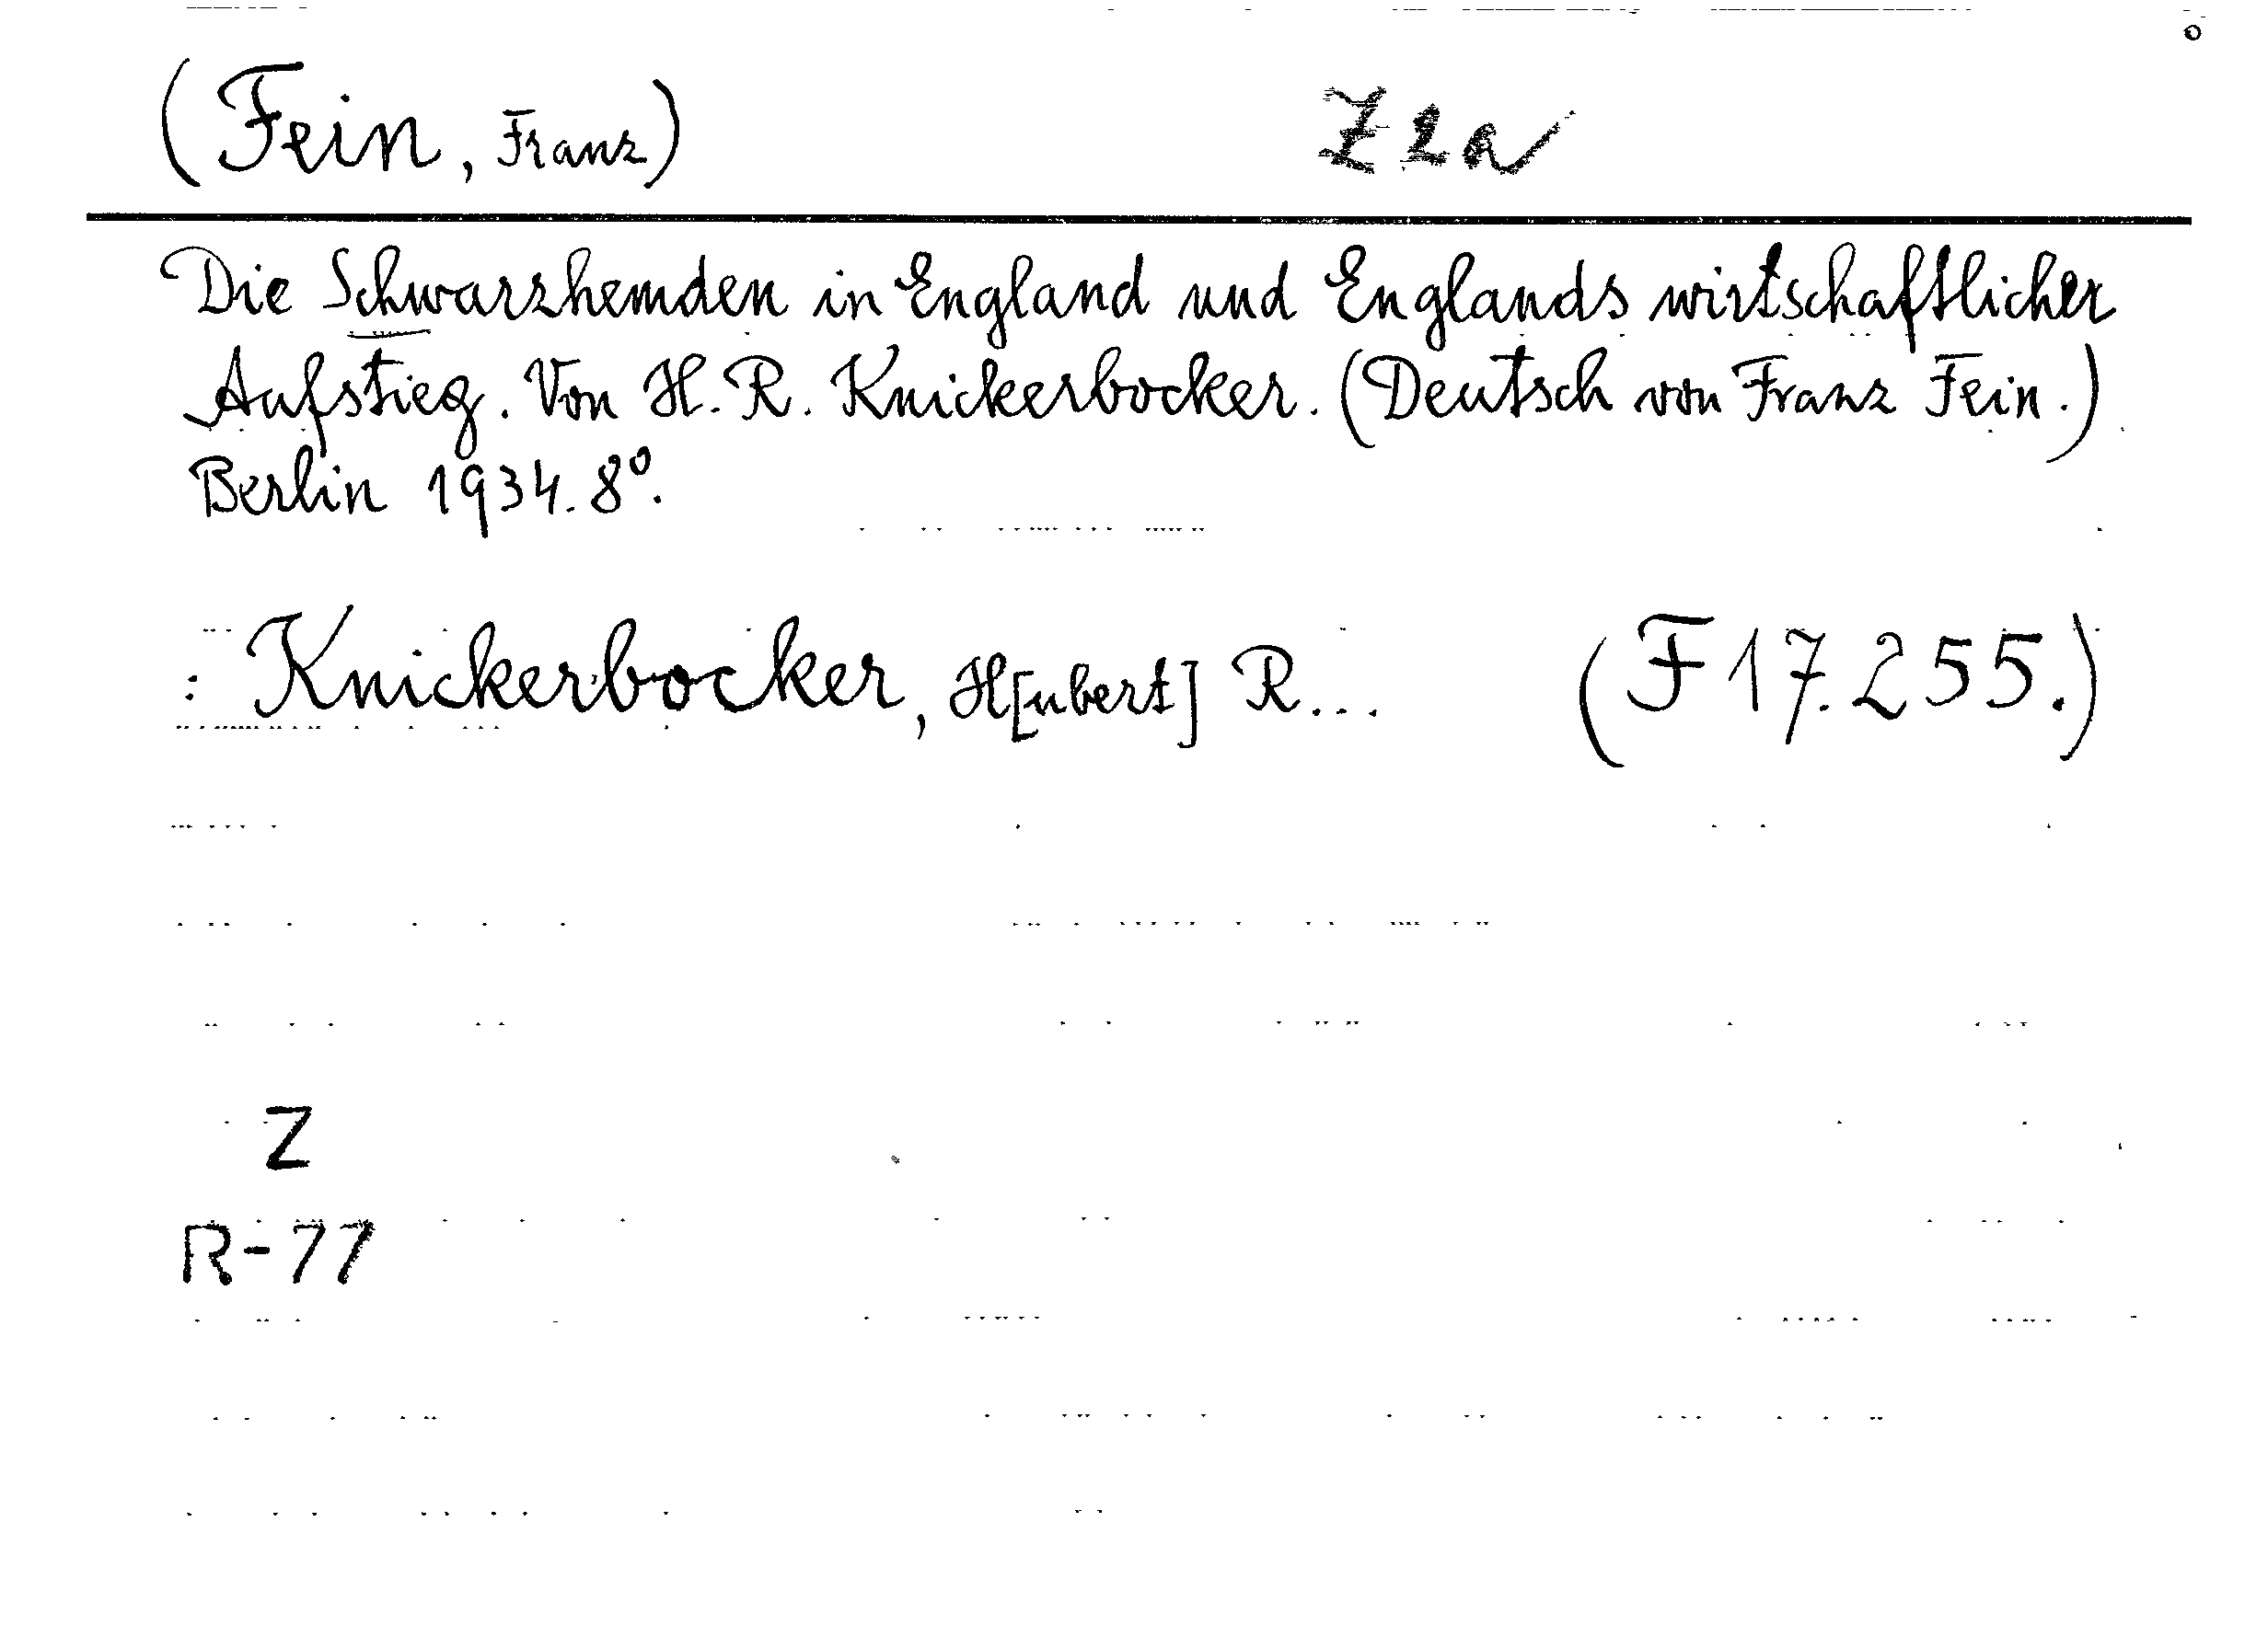 (Fein, Franz) Z2a
Die Schwarzhemden in England und Englands wirtschaftlicher
Aufstieg. Von H. R. Knickerbocker. (Deutsch von Franz Fein.)
Berlin 1934. 8°.
: Knickerbocker, H[ubert] R... (F 17.255.)
Z
R-77